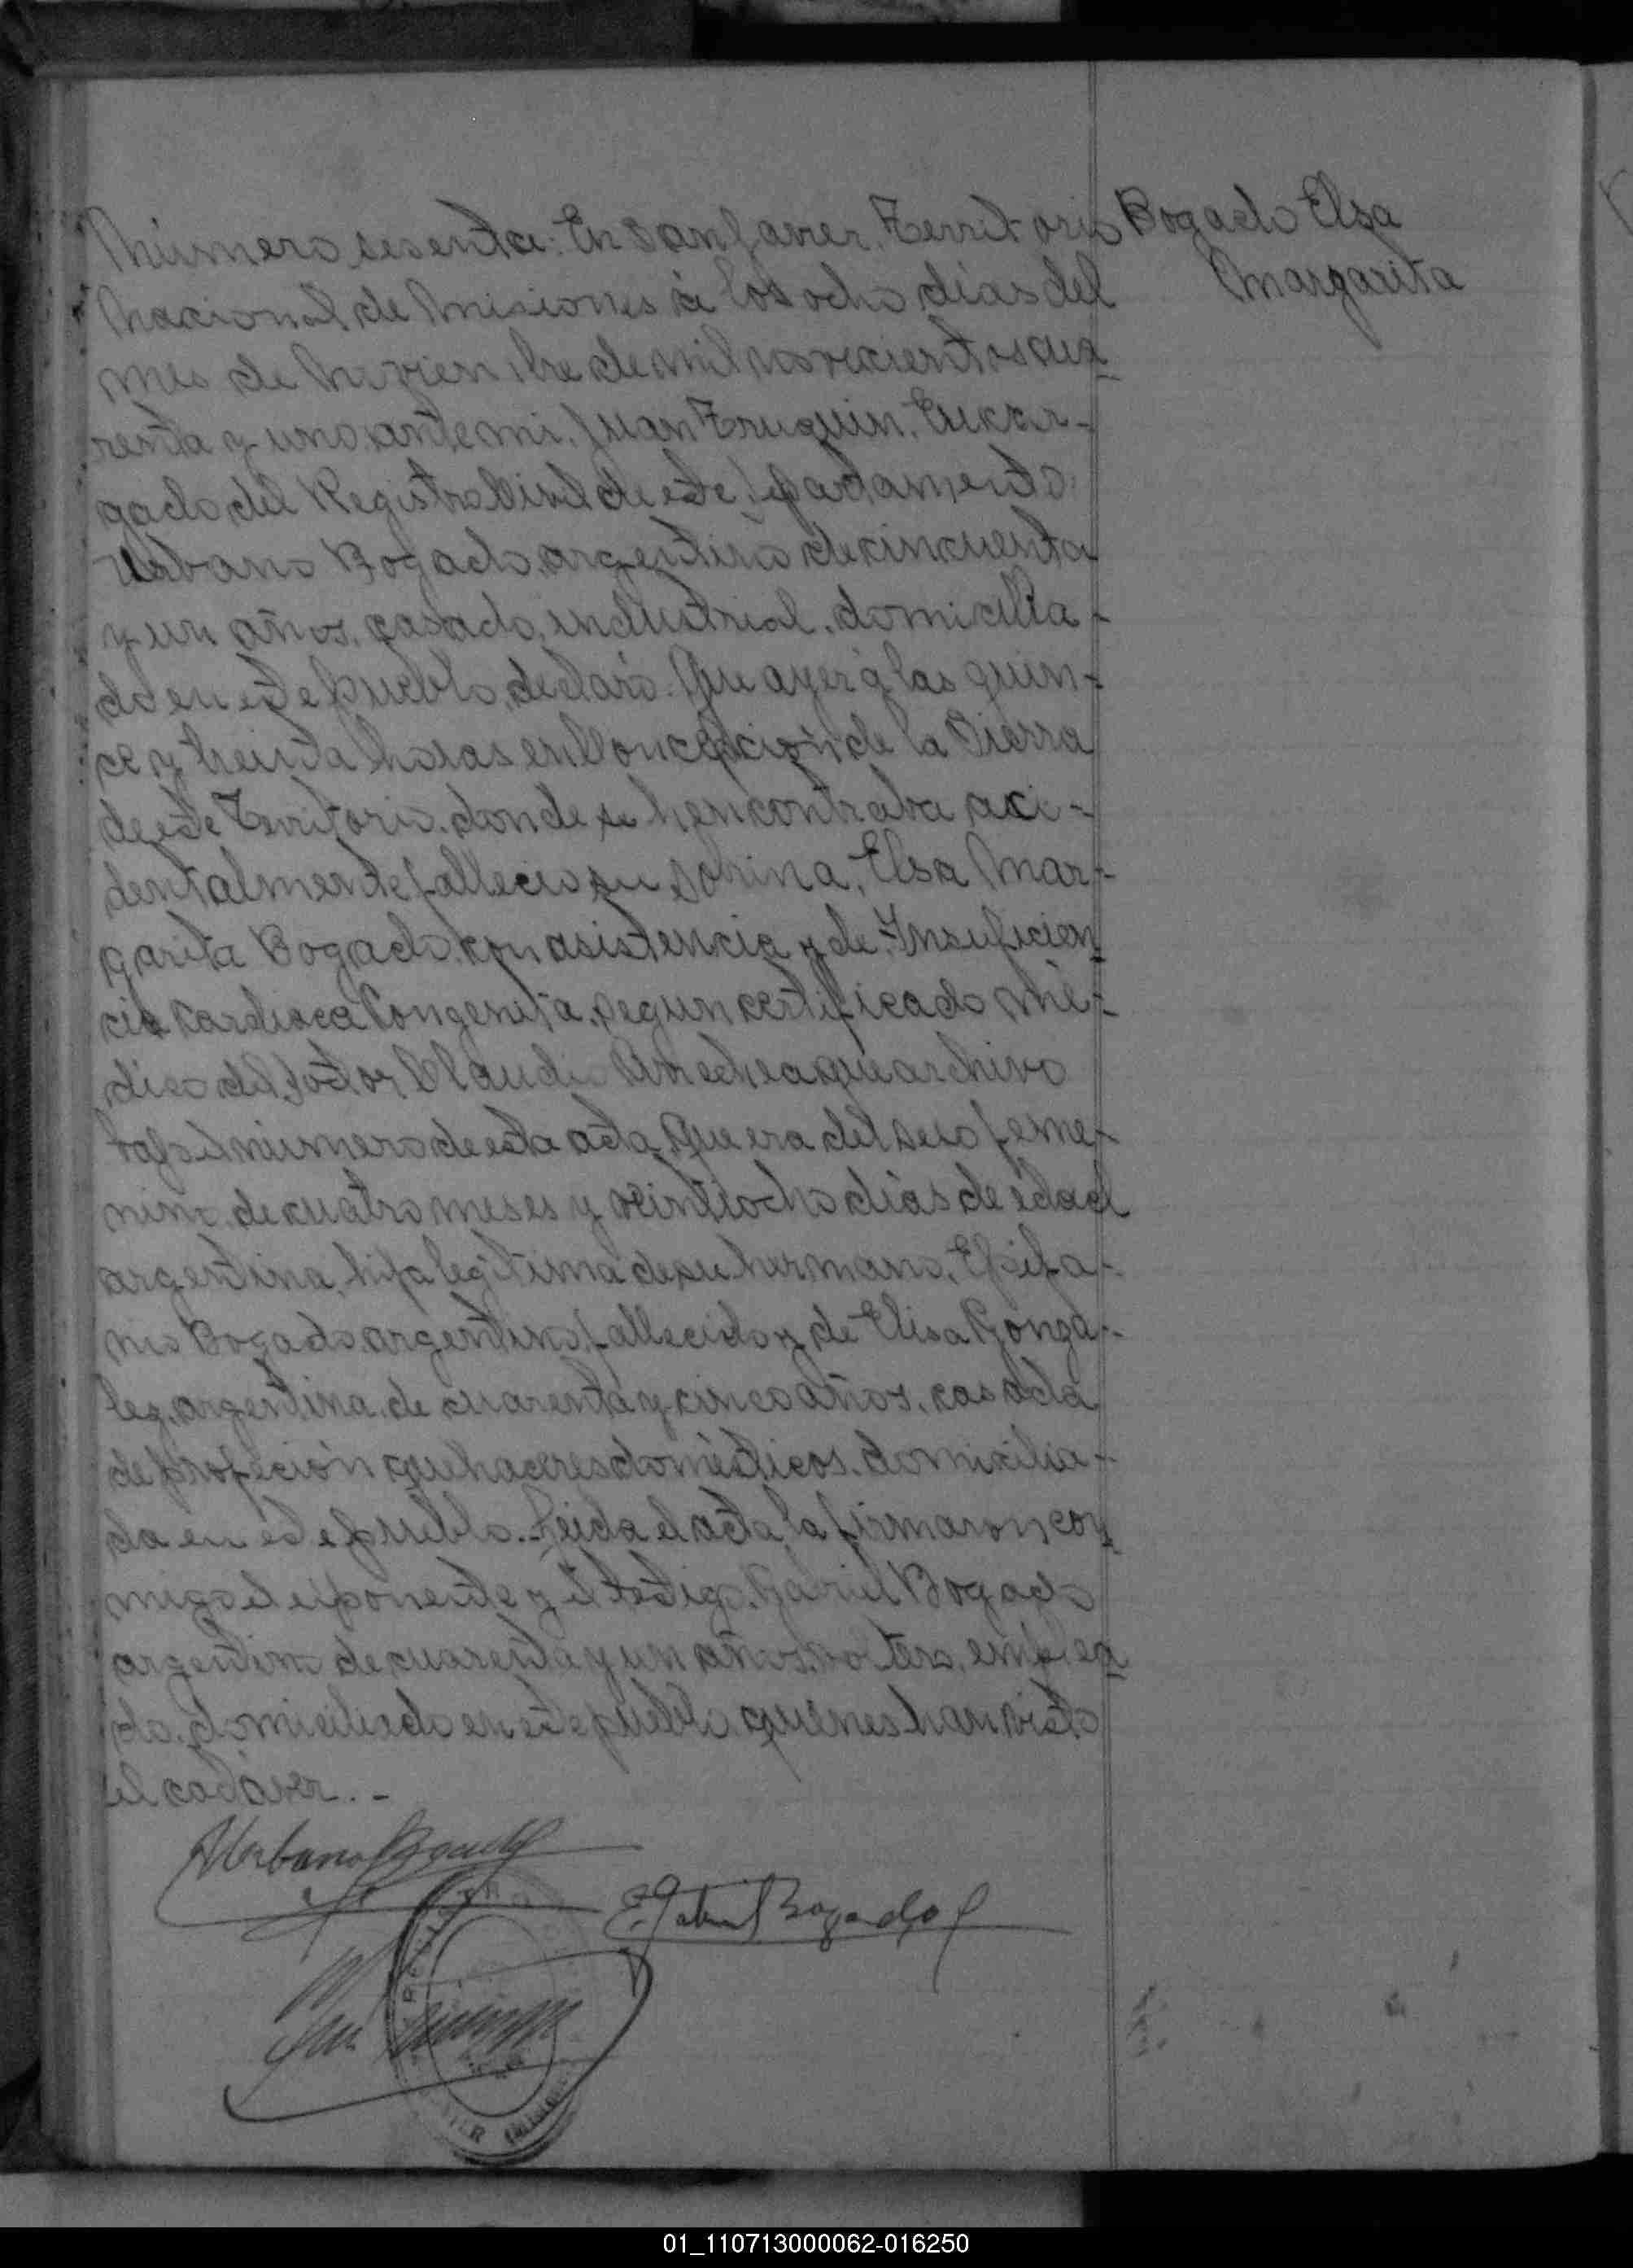 Número sesenta: En San Javier, Territorio
Nacional de Misiones á los ocho dias del
mes de Noviembre de mil novecientos cua
renta y uno, ante mi, Juan Truquin, Encar-
gado del Registro Civil de este Departamento
Urbano Bogado, argentino de cincuenta
y un años, casado, industrial, domicilia-
do en este pueblo, declaró: Que ayer á las quin-
ce y treinta horas en Concepción de la Sierra
de este Territorio, donde se hencontraba acci-
dentalmente falleció su sobrina, Elsa Mar-
garita Bogado, con asistencia y de Insuficien
cia Cardiaca Congenita, segun certificado mé-
dico del Doctor Claudio Arrechea que archivo
bajo el número de esta acta, Que era del sexo feme-
nino, de cuatro meses y veintiocho dias de edad
argentina, hija legitima de su hermano, Epifa-
nio Bogado, argentino, fallecido y de Elisa Gonza-
lez, argentina, de cuarenta y cinco años, casada
de profeción quehaceres domésticos, domicilia-
da en este pueblo. Leida el acta, la firmaron con
migo el exponente y el testigo, Gabriel Bogado
argentino de cuarenta y un años, soltero, emplea
do, domiciliado en este pueblo quienes han visto
el cadáver. -
Bogado Elsa
Margarita
Urbano Bogado
E. Gabriel Bogado
REGISTRO
01_110713000062-016250